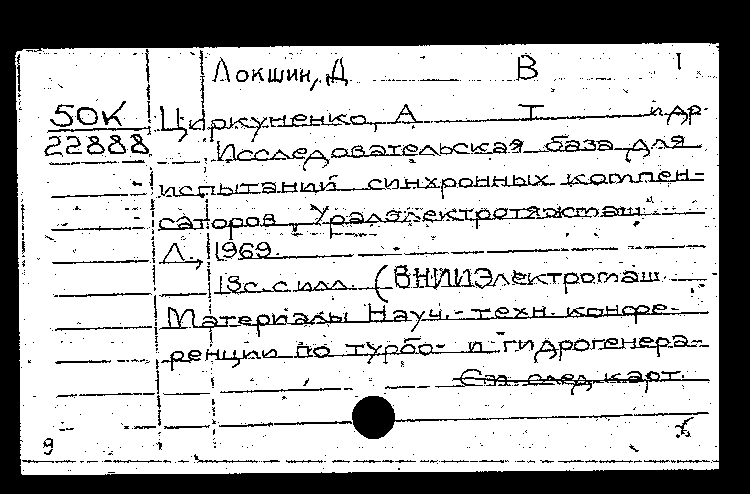 Локшин, Д В 1
50К Циркуненко, А Т и др.
22888 Исследовательская база для
испытаний синхронных компен-
саторов „Уралэлектротяжмаш"
Л., 1969.
18с. с илл. (ВНИИЭлектромаш
Материалы Науч.-техн. конфе-
ренции по турбо- и гидрогенера-
См. след. карт.
9